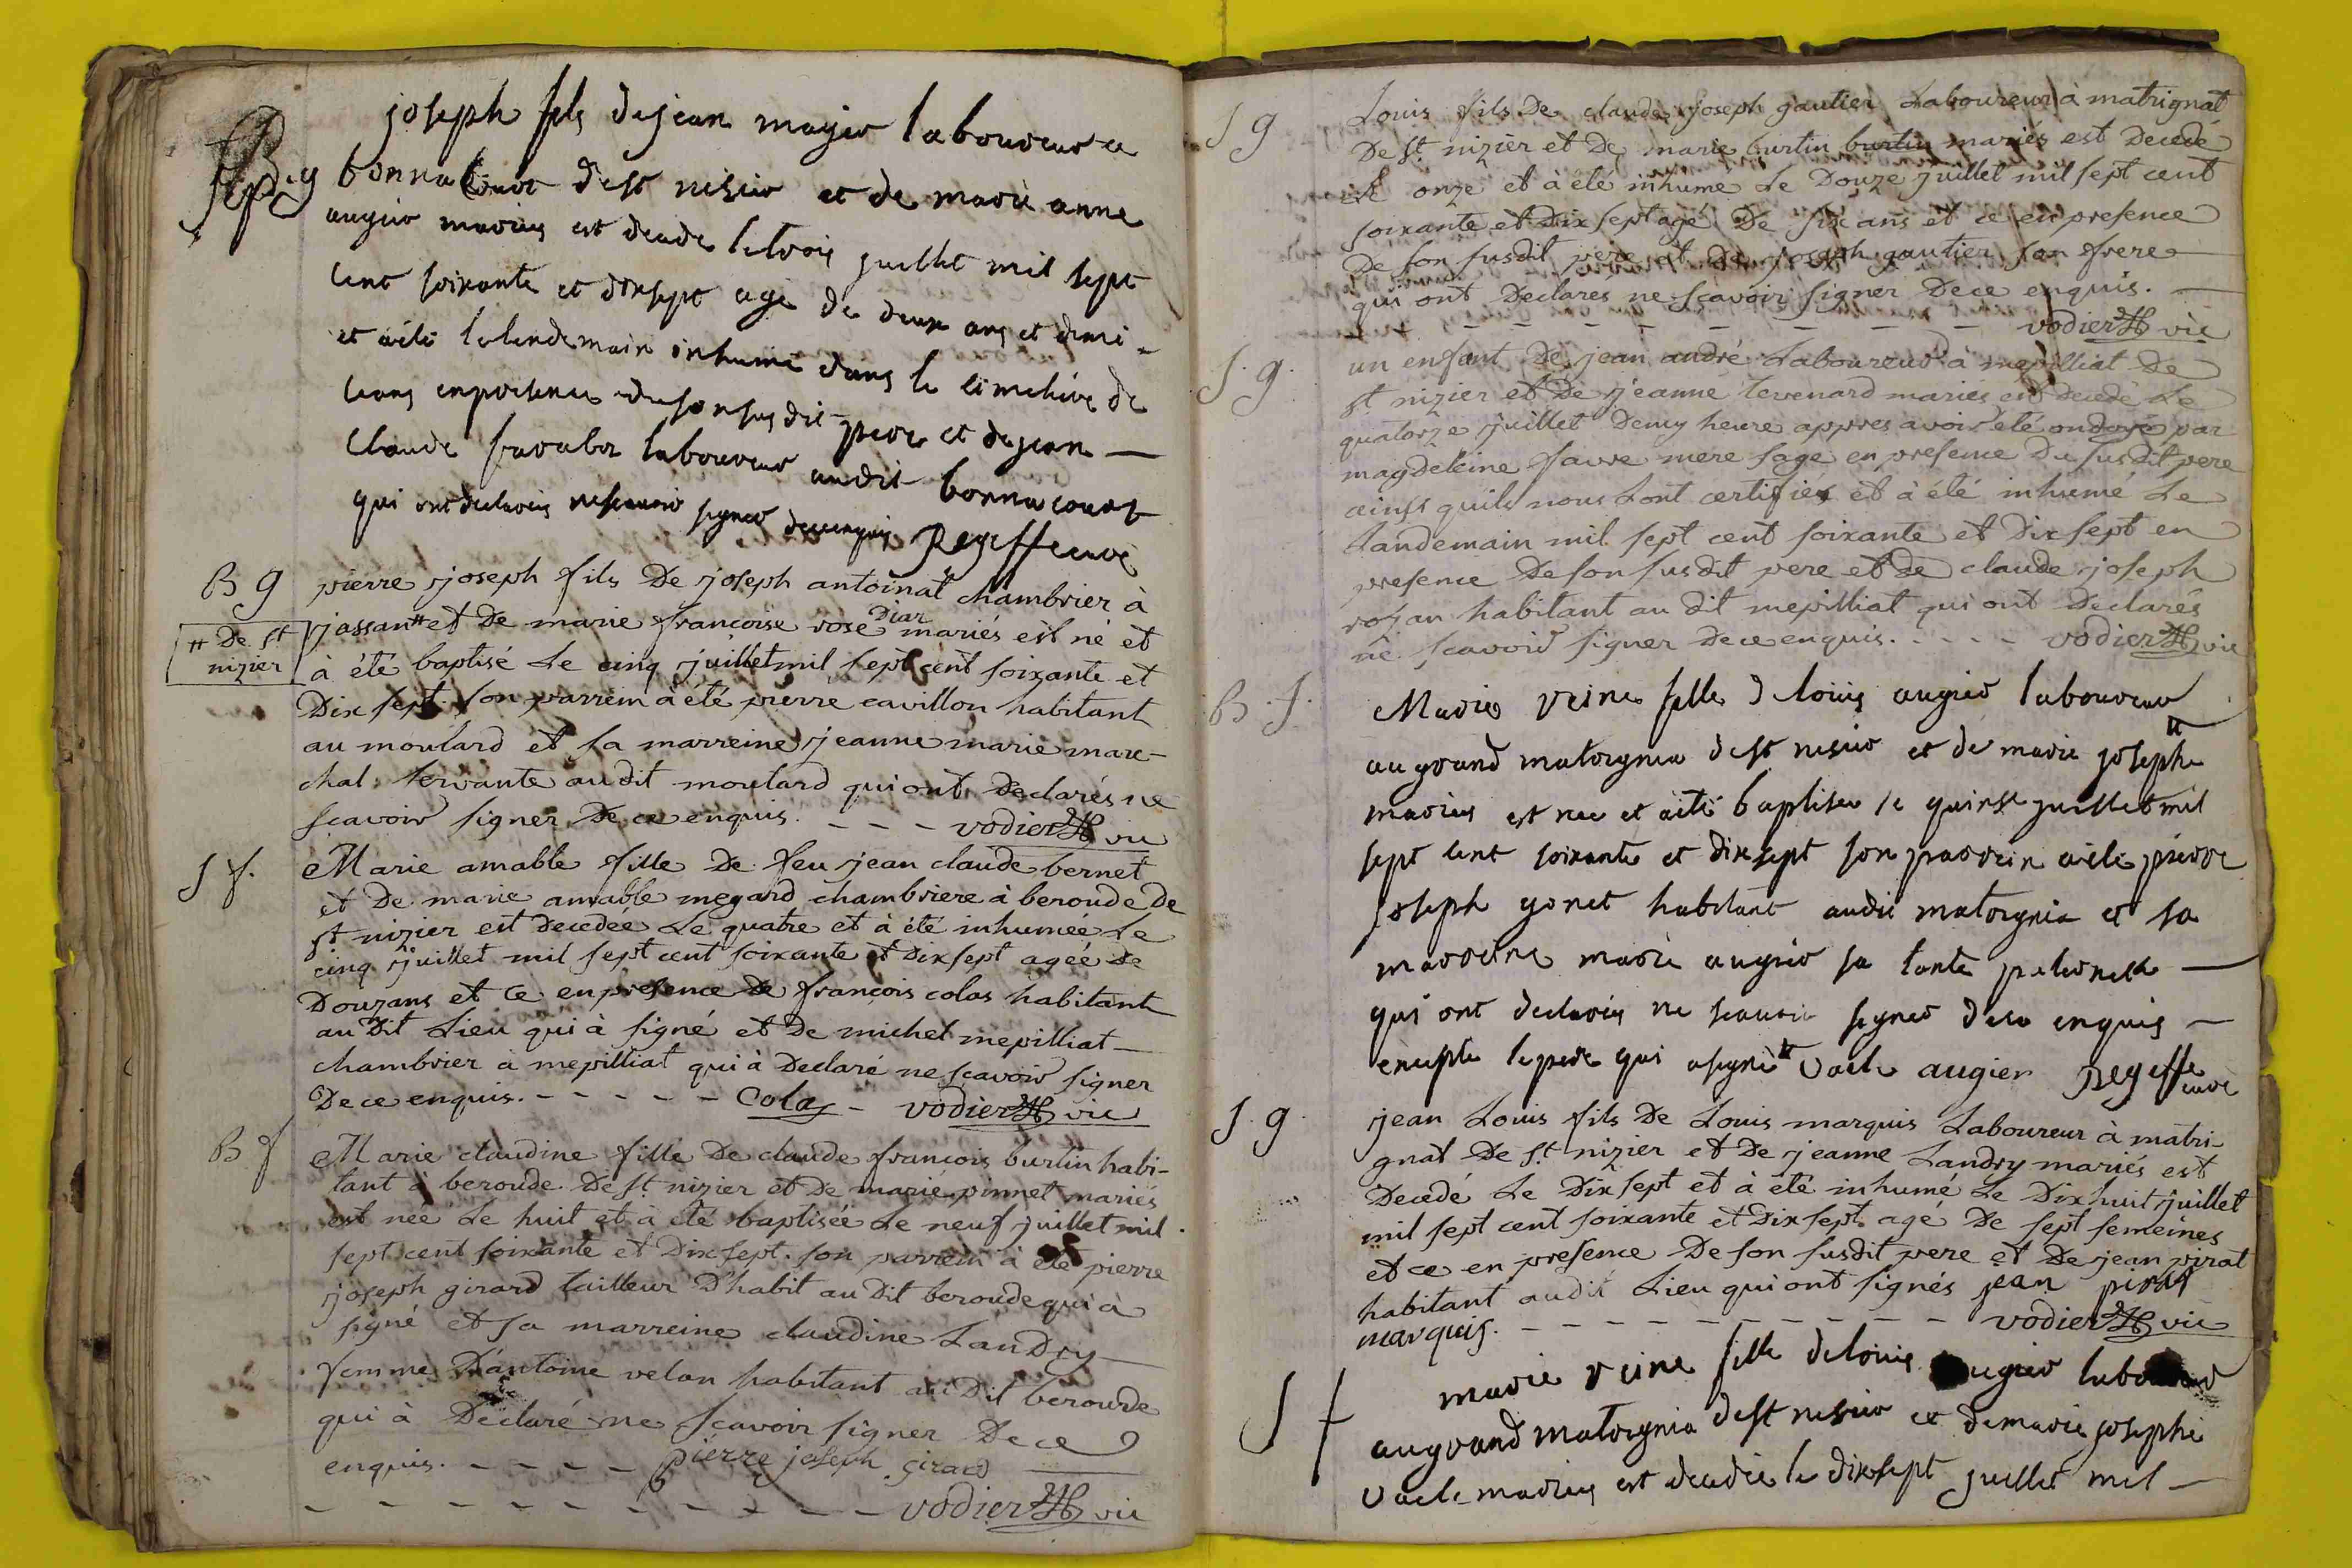 joseph fils de jean mayer laboureur a
S g bonnacourt de st nisier et de marie anne
augier mariés est decede le trois juillet mil sept
cent soixante et dixsept agé de deux ans et demi
et a été le lendemain inhumé dans le cimetiere de
ceans en presence de son susdit pere et de jean
claude laboureur audit bonnacourt
qui ont declarés ne scavoir signer de ce enquis Regeffe curé
B g pierre joseph fils De joseph antoinat chambrier à
# De st nizier
jassan # et De marie françoise rose Diar mariés est né et
à été baptisé Le cinq juillet mil sept cent soixante et
Dix sept son parrein à été pierre cavillon habitant
au moulard et sa marreine jeanne marie mare-
chal servante au dit moulard qui ont Declarés ne
scavoir signer De ce enquis. - - - vodier vic
S f. Marie amable fille De feu jean claude bernet
et De marie amable megard chambriere à beroude De
st nizier est Decedée Le quatre et à été inhumée Le
cinq juillet mil sept cent soixante et Dix sept agée De
Douzans et ce en presence De françois colas habitant
au Dit Lieu qui à signé et De michel mepilliat
chambrier à mepilliat qui à Declaré ne scavoir signer
De ce enquis. - - - - - Colas - vodier vic
B f Marie claudine fille De claude françois burtin habi-
tant à beroude De st nizier et De marie pinnet mariés
est née Le huit et à été baptisée Le neuf juillet mil
sept cent soixante et Dix sept. son parrein à été pierre
joseph girard tailleur D'habit au Dit beroude qui à
signé et sa marreine claudine LanDry
femme D'antoine velon habitant au Dit beroude
qui à Declaré ne scavoir signer De ce
enquis. - - - - pierre joseph girard
- - - - - - - - - vodier vic
S g Louis fils De claude joseph gautier Laboureur à matrignat
De st nizier et De marie burtin burtin mariés est Decedé
Le onze et à été inhumé Le Douze juillet mil sept cent
soixante et Dix sept agé De six ans et ce en presence
De son susdit pere et De joseph gautier son frere
qui ont Declarés ne scavoir signer De ce enquis.
- - - - - - - - - vodier vic
S. g. un enfant De jean andré Laboureur à mepilliat De
st nizier et De jeanne tevenard mariés est Decedé Le
quatorze juillet Demy heure appres avoir été ondoyé par
magdeleine favre mere sage en presence Du susdit pere
ainsi quils nous Lont certifiex et à été inhumé Le
Landemain mil sept cent soixante et Dix sept en
presence De son susdit pere et De claude joseph
rozan habitant au dit mepilliat qui ont Declarés
ne scavoir signer De ce enquis. - - - - vodier vic
B. f. Marie reine fille de louis augier laboureur
au grand matrignia de st nisier et de marie josephe #
mariés est nee et a été baptisée le quinse juillet mil
sept cent soixante et dix sept son parrein a été pierre
joseph gonet habitant audit matrignia et sa
marreine marie augier sa tante paternelle
qui ont declarés ne scavoir signer de ce enquis
excepté le pere qui a signé # vaele augier Regeffe curé
S. g. jean Louis fils De Louis marquis Laboureur à matri-
gnat De st nizier et De jeanne Landry mariés est
Decedé Le Dix sept et à été inhumé Le Dix huit juillet
mil sept cent soixante et Dix sept agé De sept semeines
et ce en presence De son susdit pere et De jean pirat
habitant audit Lieu qui ont signés jean pirat
marquis. - - - - - - - - - vodier vic
S f marie reine fille de louis augier laboureur
au grand matrignia de st nisier et de marie josephe
vaele mariés est decedée le dix sept juillet mil